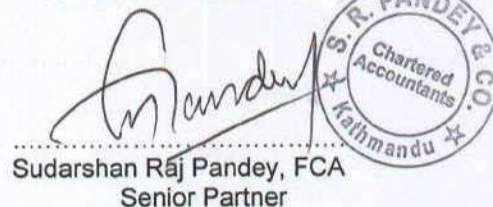 S. R. PANDEY & CO.
Chartered
Accountants
Kathmandu
Sudarshan Raj Pandey, FCA
Senior Partner